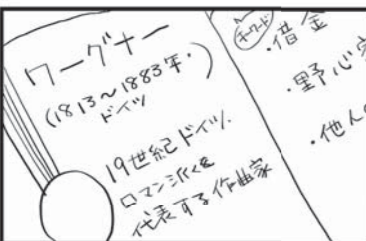 ワーグナー
(1813～1883年・)
ドイツ
19世紀ドイツ.
ロマン派を
代表する作曲家
キーワード
・借金
・野心家
・他人の